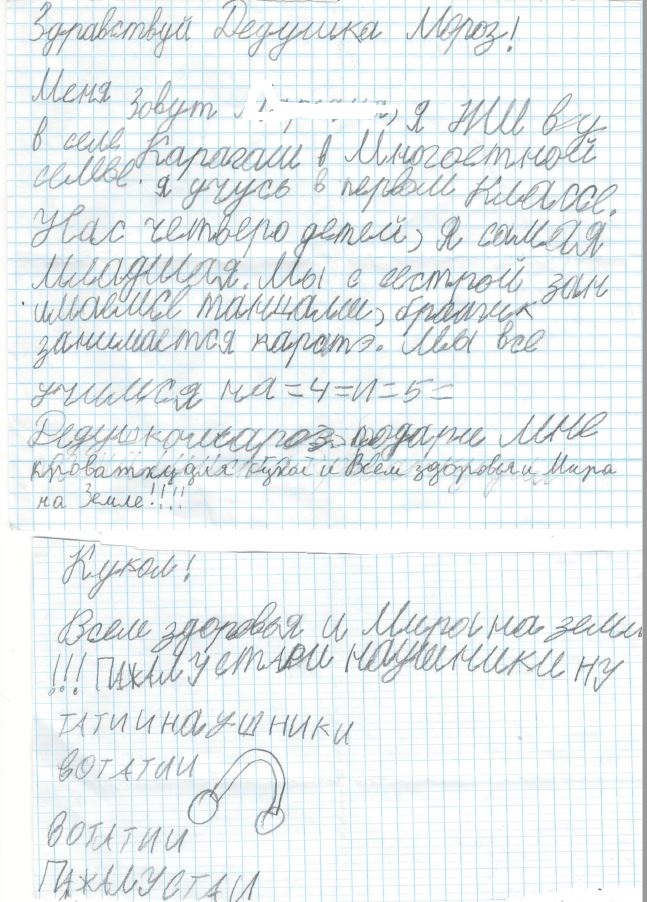 Здравствуй Дедушка Мороз!
Меня зовут я жи ву
в селе Карагаш в Многоетной
семье. я учусь в первом Классе.
Нас четверо детей, я самая
младшая. Мы с сестрой зан
имаемся танцами, братик
занимается каратэ. Мы все
учимся на =4=и=5=
подари мне
кроватку для кукол и Всем здоровья и Мира
на Земле!!!!
Кукол!
Всем здоровья и Мира на земле
!!! ПАЖАЛУСТА И наушники НУ
ТАТИИ НАУШНИКИ
ВОТАТИИ
ВОТАТИИ
ПАЖАЛУСТА И